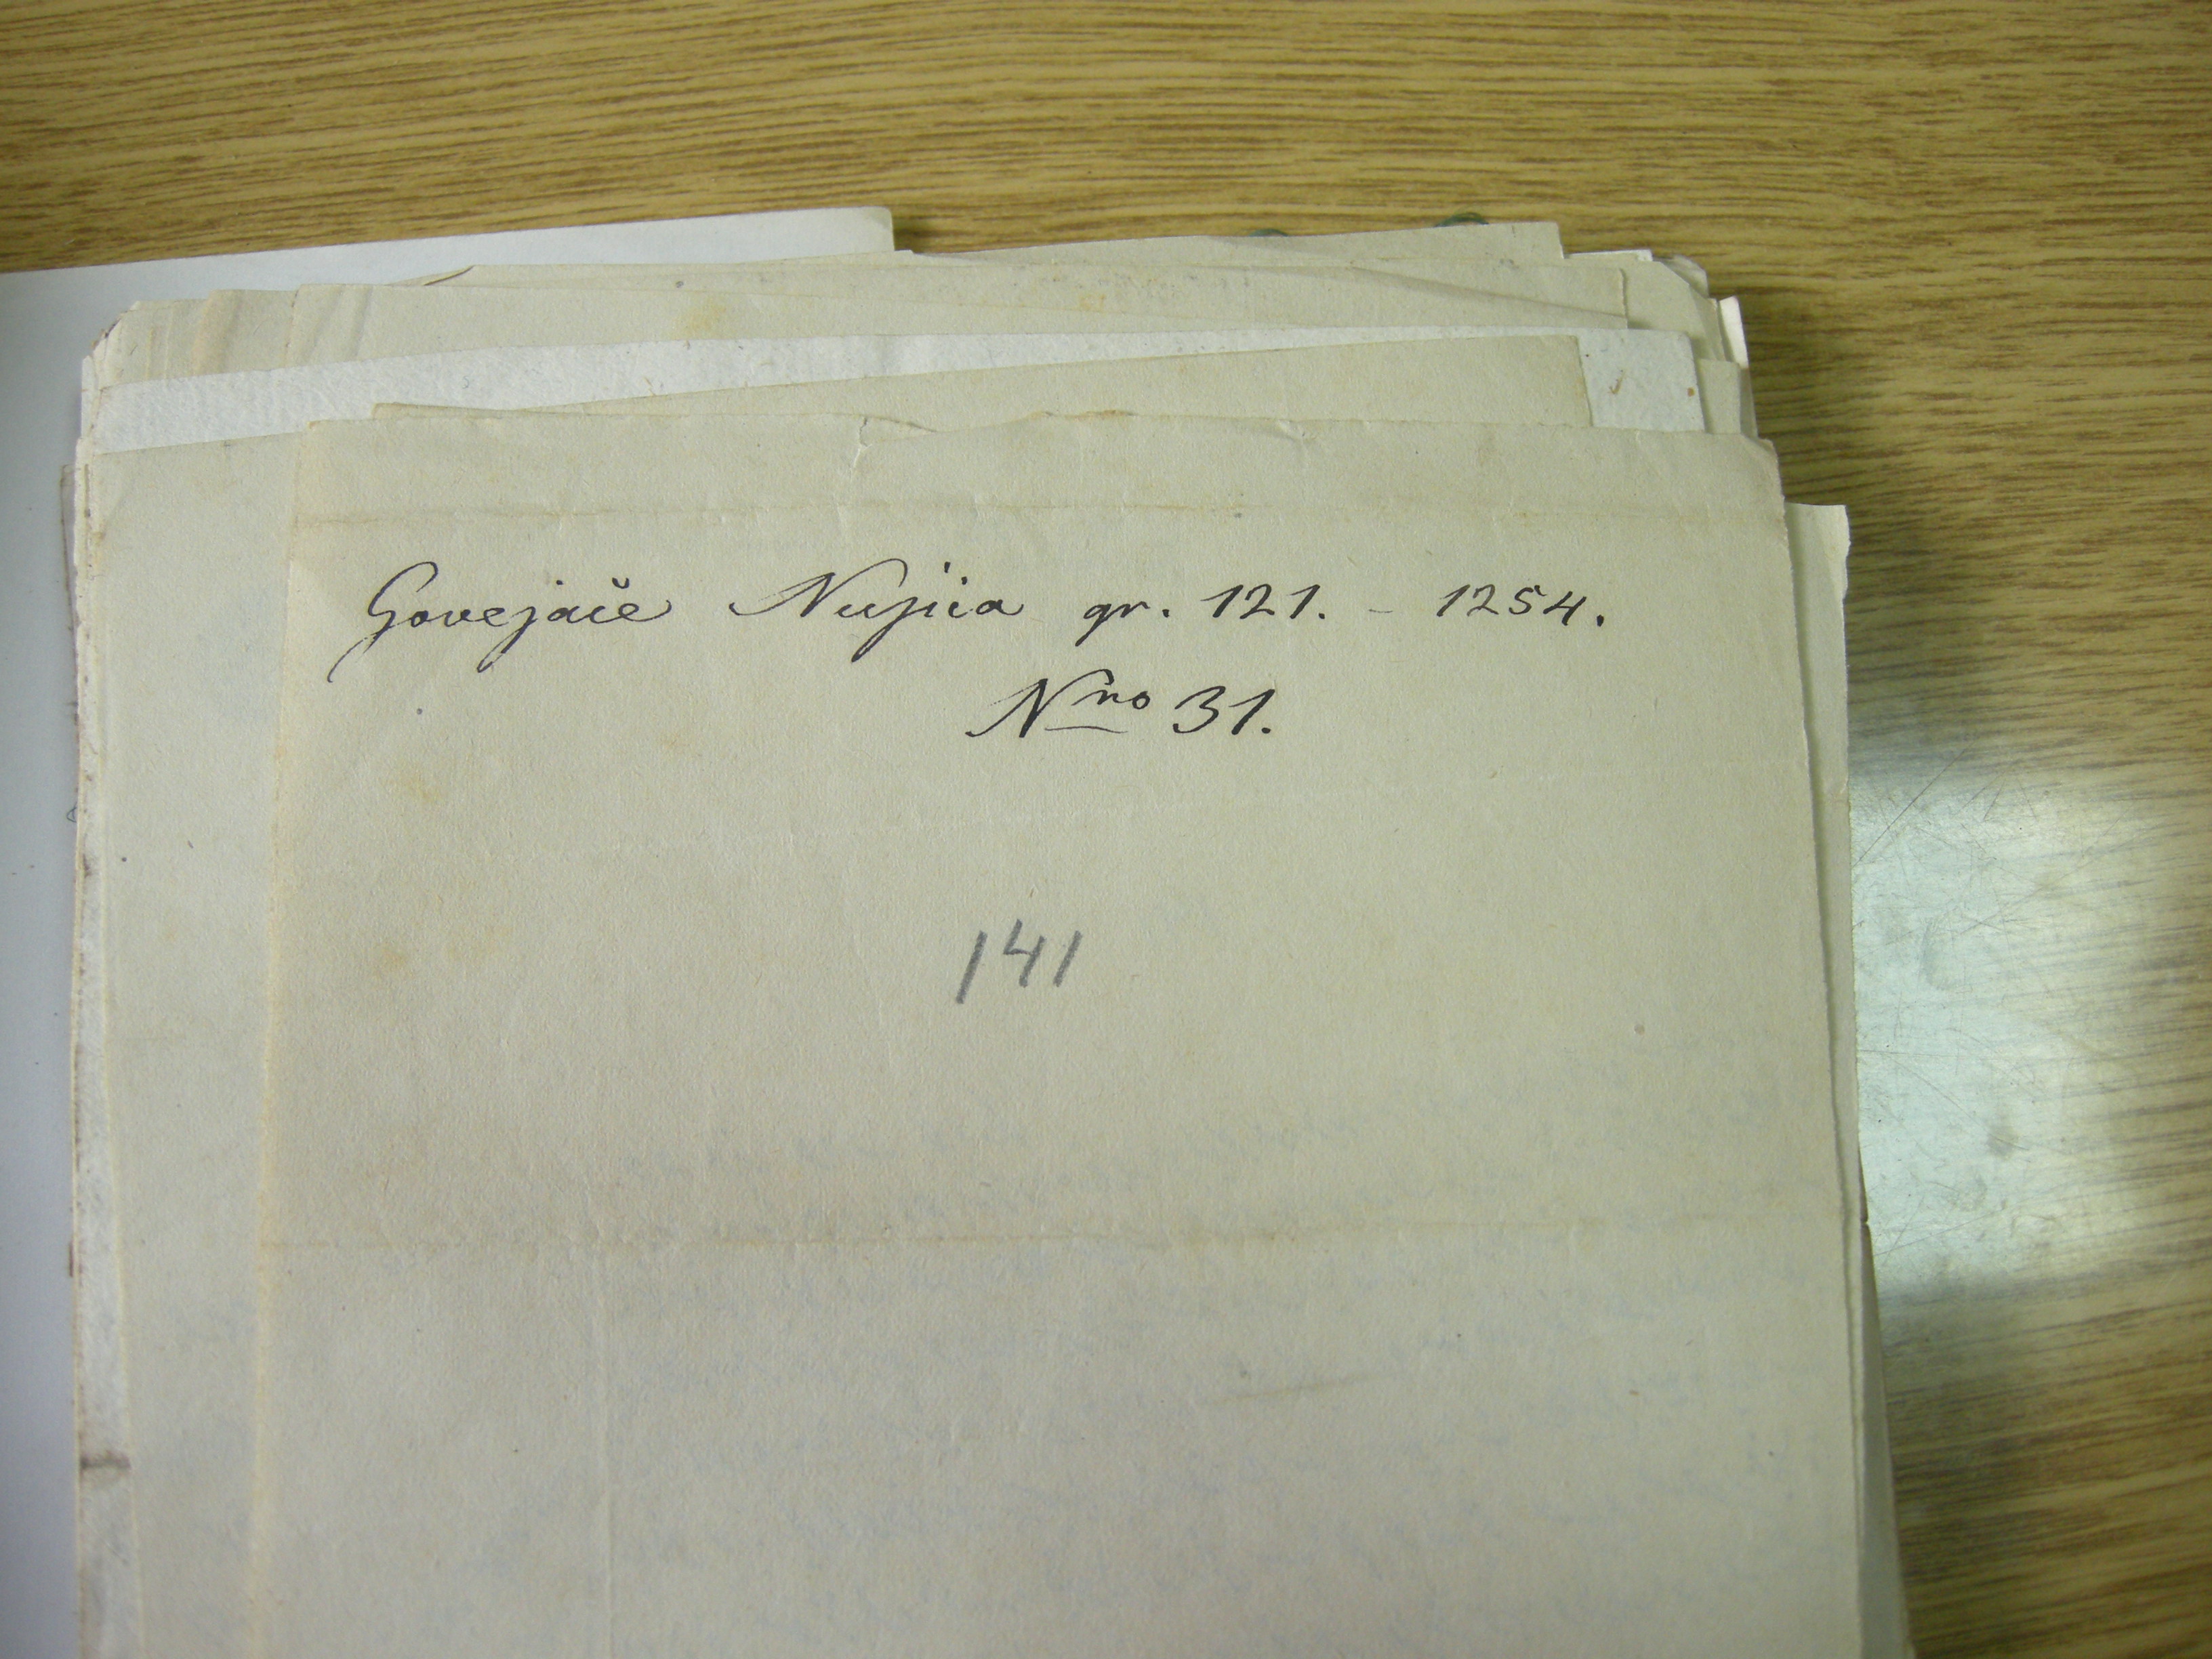 Govejače Nujica gr. 121. - 1254.
Nro 31.
141